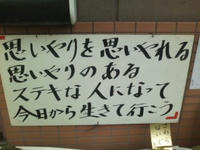 思いやりを思いやれる
思いやりのある
ステキな人になって
今日から生きて行こう